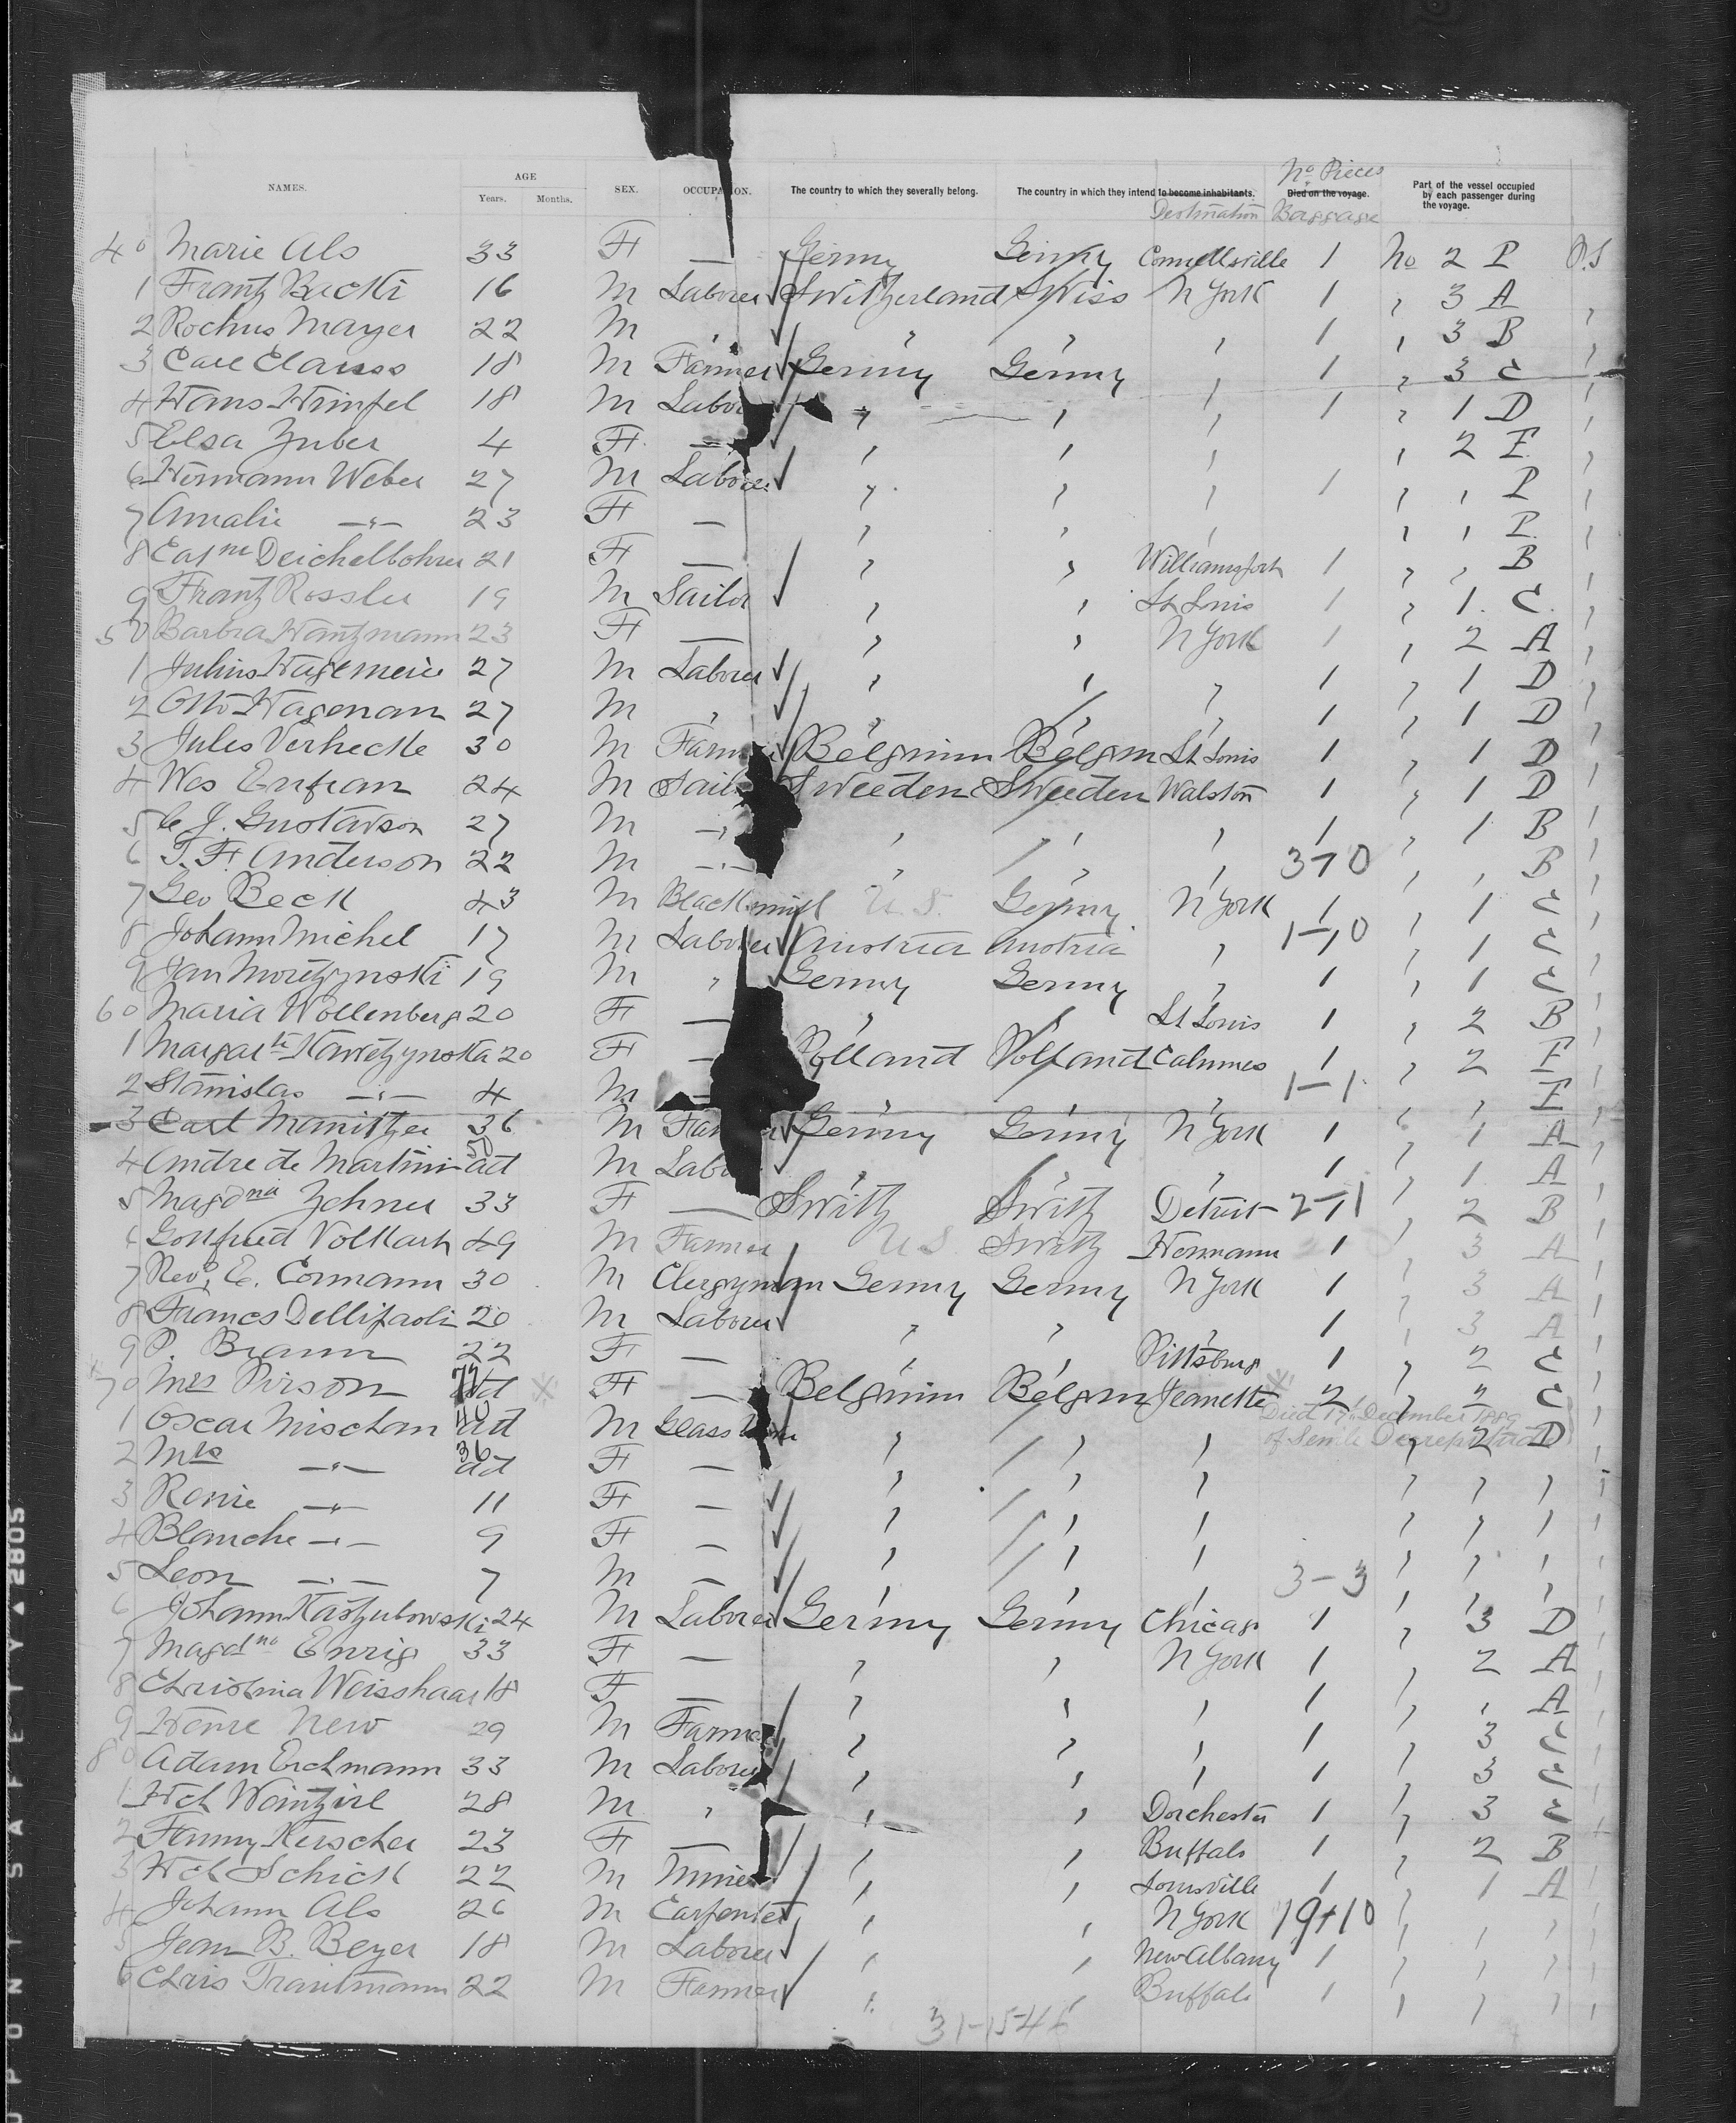 NAMES. AGE SEX. OCCUPATION. The country to which they severally belong. The country in which they intend to become inhabitants. No Pieces Died on the voyage. Part of the vessel occupied by each passenger during the voyage.
Years. Months. Destination Baggage
40 Marie Als 33 F — Germy Germy Connellsville 1 No 2 P
1 Frantz Backti 16 M Laborer Switzerland Swiss N York 1 " 3 A "
2 Rochus Mayer 22 M " " " " 1 " 3 B "
3 Carl Clauss 18 M Farmer Germy Germy " 1 " 3 C "
4 Hans Himpel 18 M Labo " " " 1 " 1 D "
5 Elsa Zuber 4 F — " " " " 2 E "
6 Hermann Weber 27 M Laborer " " " 1 " " P "
7 Amalie —"— 23 F — " " " " " P "
8 Deichelbohrer 21 F — " " Williamsport 1 " " B "
9 Frantz Rossler 19 M Sailor " " St Louis 1 " 1 C "
50 Barbra Hantzmann 23 F — " " N York 1 " 2 A "
1 Julius Hagemeir 27 M Laborer " " " 1 " 1 D "
2 Otto Hageman 27 M " " " " 1 " 1 D "
3 Jules Verhecke 30 M Farmer Belgium Belgm St Louis 1 " 1 D "
4 24 M Sail Sweeden Sweeden Walston 1 " 1 D "
5 C J. Gustavson 27 M —"— " " " 1 " 1 B "
6 T. F. Anderson 22 M —"— " " " 3-0 " " B "
7 Geo Beck 43 M Blacksmith U.S. Germy N York 1 " 1 C "
8 Johann Michel 17 M Laborer Austria Austria " 1-10 " 1 C "
9 Jan 19 M " Germy Germy " 1 " 1 C "
60 Maria Wollenberg 20 F — " " St Louis 1 " 2 B "
1 20 F — Polland Polland 1 " 2 F "
2 Stanislas —"— 4 M " " " 1-1 " " F "
3 Carl Manitzer 36 M Far Germy Germy N York 1 " 1 A "
4 Andre de Martini ad 50 M Labo " " " 1 " 1 A "
5 Magdna Zehner 33 F — Switz Switz Detroit 2-1 " 2 B "
6 Gottfried Volkart 49 M Farmer U S Switz Hermann 1 " 3 A "
7 Revd. E. Cormann 30 M Clergyman Germy Germy N York 1 " 3 A "
8 Francs Dellipaoli 20 M Laborer " " " 1 " 3 A "
9 P. Braun 22 F — " " Pittsburg 1 " 2 C "
70 Mrs Pirson ad F — Belgium Belgm Jeanette 2 " 2 C "
Died 17th December 1889
of Senile
1 Oscar Mischan ad 40 M Glass " " " " 2 D "
2 Mrs —"— ad 36 F — " " " " " " "
3 Renie —"— 11 F — " " " " " " "
4 Blanche —"— 9 F — " " " " " " "
5 Leon —"— 7 M — " " " 3-3 " " " "
6 Johann Kaszubowski 24 M Laborer Germy Germy Chicago 1 " 3 D "
7 Magdna Enrig 33 F — " " N York 1 " 2 A "
8 Christina Weisshaar 18 F — " " " 1 " " A "
9 New 29 M Farmer " " " 1 " 3 C "
80 Adam Eichmann 33 M Laborer " " " 1 " 3 C "
1 Hch Weintzirl 28 M " " " Dorchester 1 " 3 C "
2 Fanny Kerscher 23 F — " " Buffalo 1 " 2 B "
3 Hch Schick 22 M Miner " " Louisville 1 " 1 A "
4 Johann Als 26 M Carpenter " " N York 19+10 " " " "
5 Jean B. Beyer 18 M Laborer " " New Albany 1 " " " "
6 Chris Trautmann 22 M Farmer " " Buffalo 1 " " " "
31-15-46
SAFETY ▲ 2805